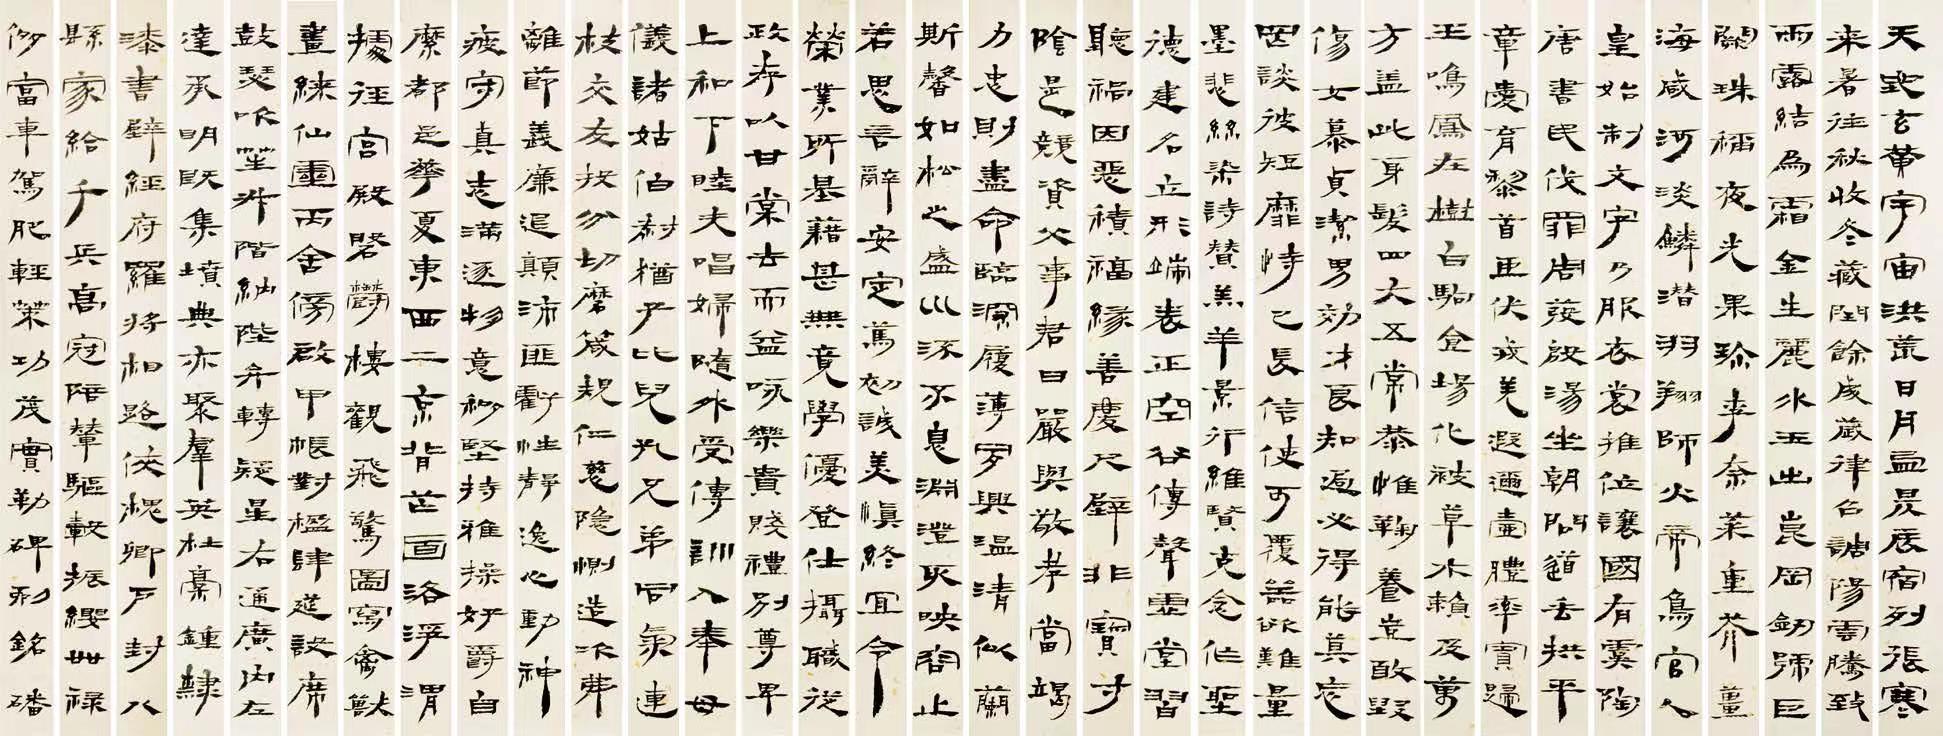 天地玄黄宇宙洪荒日月盈昃辰宿列張寒
来暑往秋收冬藏閏餘成歲律吕調陽雲騰致
雨露結為霜金生麗水玉出崑岡劒號巨
闕珠稱夜光果珍李柰菜重芥薑
海鹹河淡鱗潛羽翔師火帝鳥官人
皇始制文字乃服衣裳推位讓國有虞陶
唐弔民伐罪周發殷湯坐朝問道垂拱平
章愛育黎首臣伏戎羌遐邇壹體率賓歸
王鳴鳳在樹白駒食場化被草木賴及萬
方蓋此身髮四大五常恭惟鞠養豈敢毀
傷女慕貞潔男效才良知過必得能莫忘
罔談彼短靡恃己長信使可覆器欲難量
墨悲絲染詩讃羔羊景行維賢克念作聖
德建名立形端表正空谷傳聲虛堂習
聽禍因惡積福緣善慶尺璧非寶寸
陰是競資父事君曰嚴與敬孝當竭
力忠則盡命臨深履薄夙興温清似蘭
斯馨如松之盛川流不息淵澄取映容止
若思言辭安定篤初誠美慎終宜令
榮業所基藉甚無竟學優登仕攝職從
政存以甘棠去而益詠樂貴賤禮別尊卑
上和下睦夫唱婦隨外受傅訓入奉母
儀諸姑伯叔猶子比兒孔兄弟同氣連
枝交友投分切磨箴規仁慈隱惻造次弗
離節義廉退顛沛匪虧性靜逸心動神
疲守真志滿逐物意移堅持雅操好爵自
縻都邑華夏東西二京背芒面洛浮渭
據涇宮殿磐鬱樓觀飛驚圖寫禽獸
畫綵仙靈丙舍傍啟甲帳對楹肆筵設席
鼓瑟吹笙升階納陛弁轉疑星右通廣內左
達承明既集墳典亦聚羣英杜稾鍾隸
漆書壁經府羅將相路俠槐卿戶封八
縣家給千兵高冠陪輦驅轂振纓世禄
侈富車駕肥輕策功茂實勒碑刻銘磻